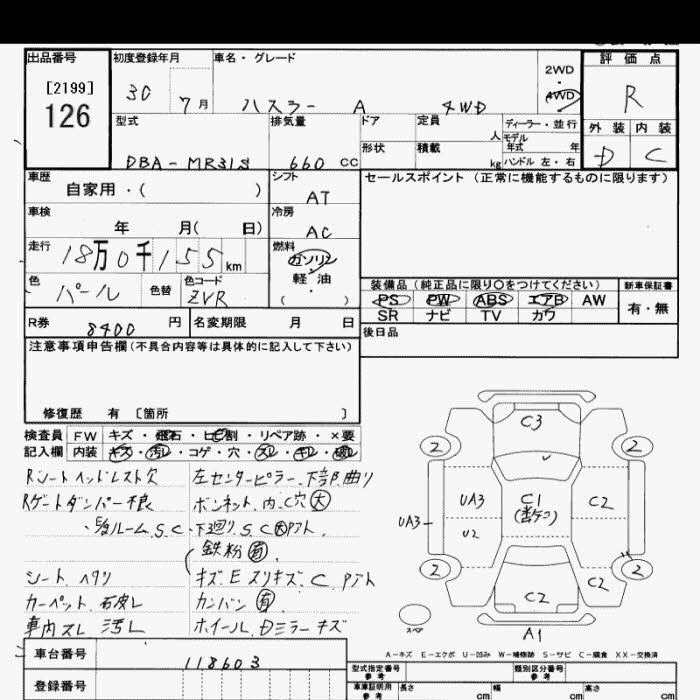 出品番号
[2199]
126
初度登録年月
30 7月
車名・グレード
ハスラー A 4WD
2WD
・
4WD
評価点
R
外装 内装
D C
型式
DBA-MR31S
排気量
660 CC
ドア
形状
定員 人
積載 kg
ディーラー・並行
モデル
年式 年
ハンドル 左・右
車歴
自家用・( )
シフト
AT
セールスポイント (正常に機能するものに限ります)
車検
年 月( 日)
冷房
AC
走行
18万0千155km
燃料
ガソリン
軽油
・
( )
色
パール
色替
色コード
ZVR
装備品 (純正品に限り○をつけてください)
PS PW ABS エアB AW
SR ナビ TV カワ
新車保証書
有・無
R券 8400 円
名変期限 月 日
後日品
注意事項申告欄 (不具合内容等は具体的に記入して下さい)
修復歴 有 〔箇所 〕
検査員 FW キズ・飛石・ヒビ割・リペア跡・×要
記入欄 内装 キズ・汚レ・コゲ・穴・スレ・キレ・破レ
Rシートヘッドレスト欠
Rゲートダンパー不良
ルーム.S.C
シート.ヘタリ
カーペット.石皮レ
車内スレ 汚レ
左センターピラー.下部.曲り
ボンネット.内.C穴(大)
・下廻り.S.C(大)アト
鉄粉(有)
キズ E スリキズ.C.アト
カンバン(有)
ホイール.Dミラーキズ
C3
2 2
UA3 C1 C2
(番ケコ)
UA3
U2
2 C2 2
C2
A1
スペア
A-キズ E-エクボ U-凹み W-補修跡 S-サビ C-腐食 XX-交換済
車台番号 118603
登録番号
型式指定番号
参考
類別区分番号
参考
車庫証明用
参考
長さ cm
幅 cm
高さ cm